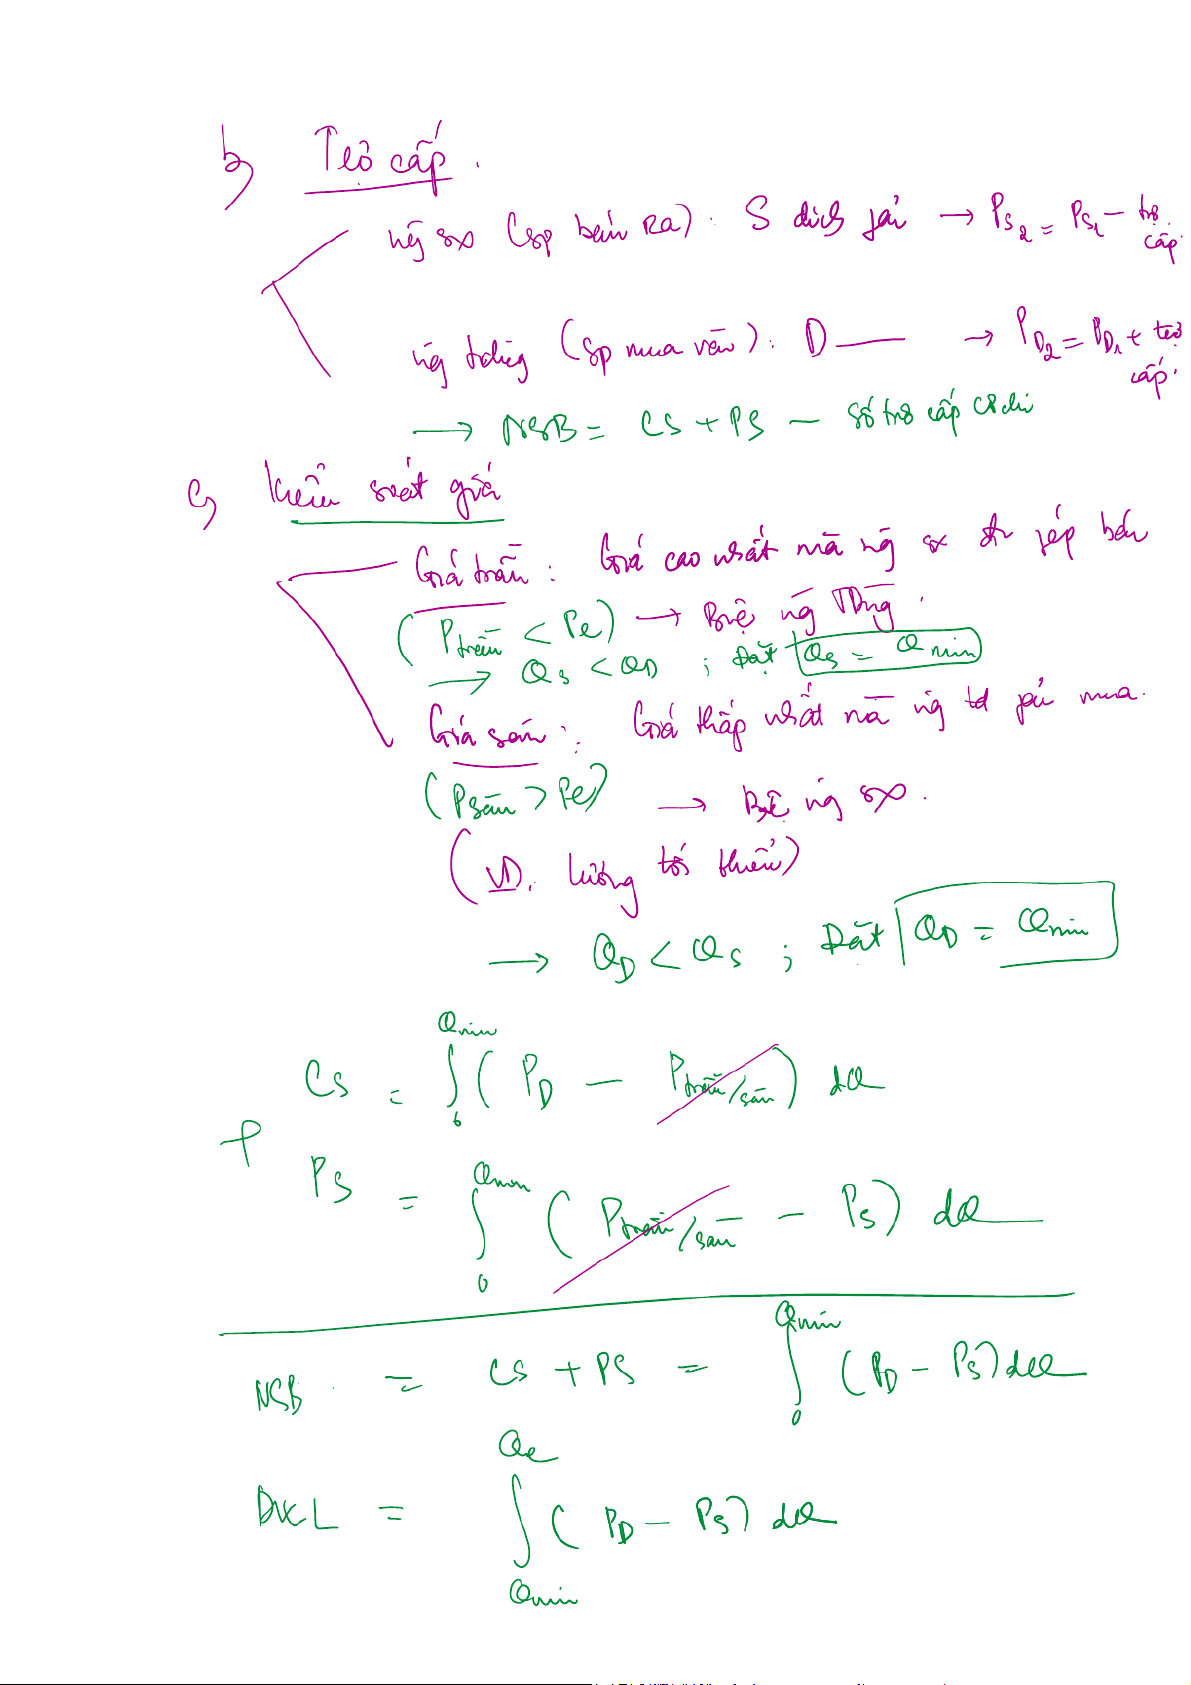 b) Trợ cấp.
ng sx (sp bán ra): S dịch phải → PS2 = PS1 – trợ cấp.
ng tdùng (sp mua vào): D —— → PD2 = PD1 + trợ cấp.
→ NSB = CS + PS – số trợ cấp CP chi
c) Kiểm soát giá
Giá trần: Giá cao nhất mà ng sx đc phép bán
(Ptrần < Pe) → Bvệ ng Tdùng.
→ QS < QD ; Đặt QS = Qmin
Giá sàn: Giá thấp nhất mà ng td phải mua.
(Psàn > Pe) → Bvệ ng sx.
(VD. lương tối thiểu)
→ QD < QS ; Đặt QD = Qmin
CS = ∫₀^Qmin (PD – Ptrần/sàn) dQ
+
PS = ∫₀^Qmin (Ptrần/sàn – PS) dQ
NSB = CS + PS = ∫₀^Qmin (PD – PS) dQ
DWL = ∫_Qmin^Qe (PD – PS) dQ